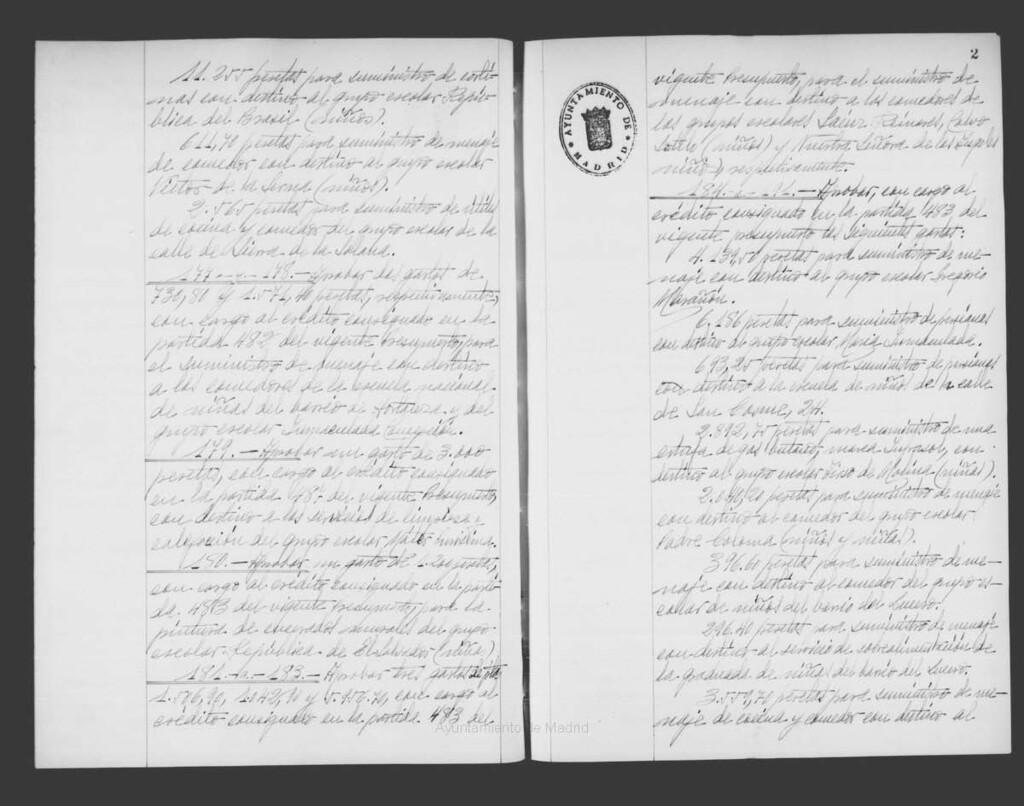 11.255 pesetas para suministro de corti-
nas con destino al grupo escolar Repú-
blica del Brasil (niños).
611,70 pesetas para suministro de menaje
de comedor con destino al grupo escolar
de la Serna (niños).
2.565 pesetas para suministro de útiles
de cocina y comedor del grupo escolar de la
calle de de la Solana.
177 a 178.- Aprobar dos gastos de
730,80 y 1.571,40 pesetas, respectivamente,
con cargo al crédito consignado en la
partida 482 del vigente Presupuesto, para
el suministro de menaje con destino
a los comedores de la Escuela nacional
de niñas del barrio de Hortaleza y del
grupo escolar Inmaculada Concepción.
179.- Aprobar un gasto de 3.000
pesetas, con cargo al crédito consignado
en la partida del vigente Presupuesto,
con destino a los servicios de limpieza y
calefacción del grupo escolar
Aprobar un gasto de pesetas,
con cargo al crédito consignado en la parti-
da 483 del vigente Presupuesto, para la
pintura de encerados murales del grupo
escolar República de El Salvador (niñas).
Aprobar tres gastos de
y con cargo al
crédito consignado en la partida 483 del
2
vigente Presupuesto, para el suministro de
menaje con destino a los comedores de
los grupos escolares Sáenz Calvo
Sotelo (niños) y Nuestra Señora de los Ángeles
respectivamente.
Aprobar, con cargo al
crédito consignado en la partida 483 del
vigente presupuesto los siguientes gastos:
4.139,50 pesetas para suministro de me-
naje con destino al grupo escolar Gregorio
Marañón.
6.186 pesetas para suministro de persianas
con destino al grupo escolar María Inmaculada.
693,25 pesetas para suministro de persianas
con destino a la escuela de niños de la calle
de San Cosme, 24.
2.892,75 pesetas para suministro de una
estufa de gas butano, marca con
destino al grupo escolar Tirso de Molina (niños).
2.040,20 pesetas para suministro de menaje
con destino al comedor del grupo escolar
Padre Coloma (niños y niñas).
396,60 pesetas para suministro de me-
naje con destino al comedor del grupo es-
colar de niños del barrio del Lucero.
296,40 pesetas para suministro de menaje
con destino al servicio de sobrealimentación de
la graduada de niñas del barrio del Lucero.
3.559,70 pesetas para suministro de me-
naje de cocina y comedor con destino al
AYUNTAMIENTO DE MADRID
Ayuntamiento de Madrid